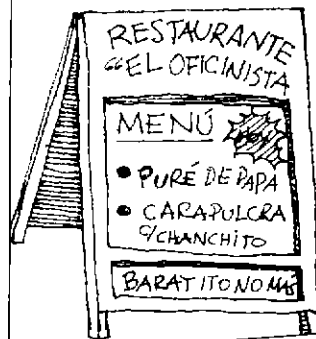 RESTAURANTE
"EL OFICINISTA
MENÚ
● PURÉ DE PAPA
● CARAPULCRA
C/CHANCHITO
BARATITO NO MÁS